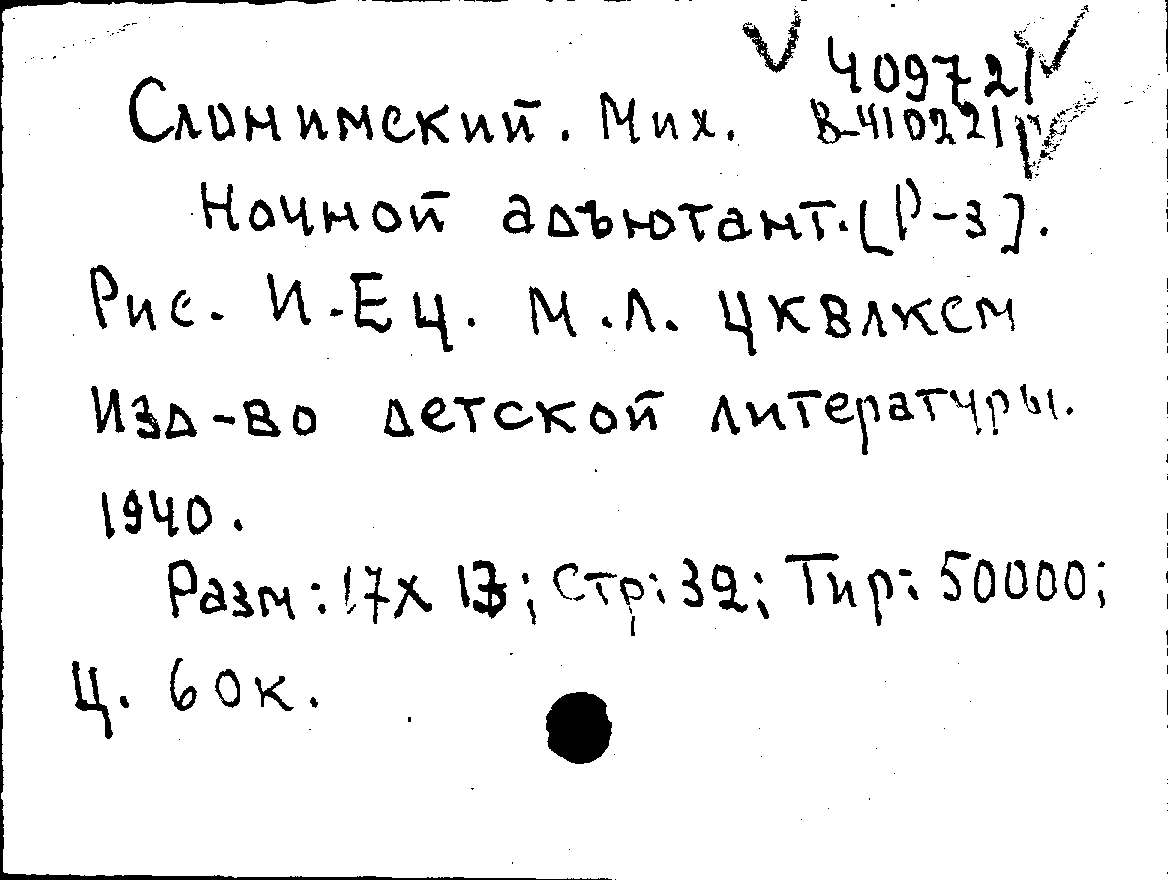 409721
Слонимский. Мих. В-410221
Ночной адъютант. [Р-з].
Рис. И-Ец. М.Л. ЦКВЛКСМ
Изд-во детской литературы.
1940.
Разм: 17х13; Стр: 32; Тир: 50000;
Ц. 60к.